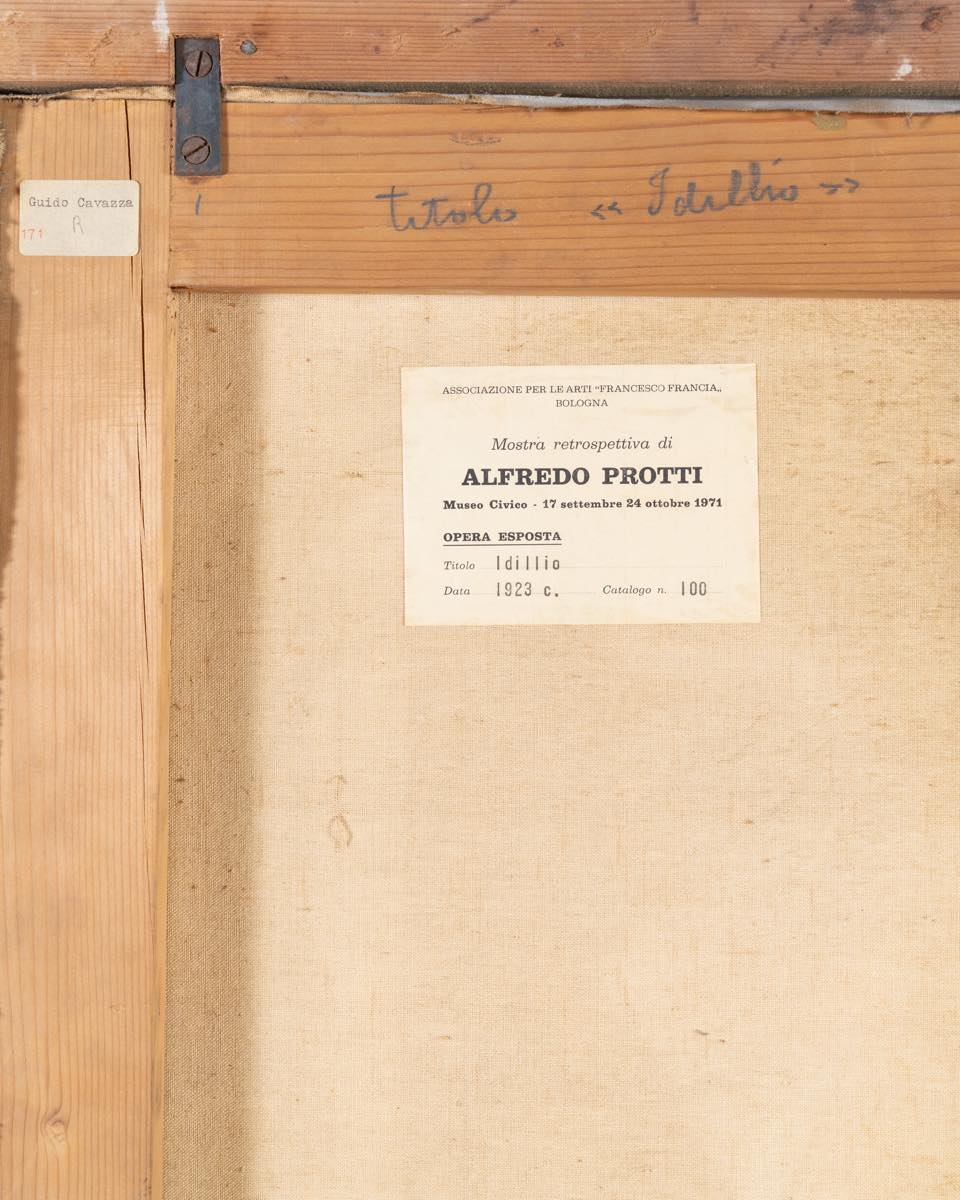 titolo << Idillio >>
1
Guido Cavazza
R
171
ASSOCIAZIONE PER LE ARTI “FRANCESCO FRANCIA„
BOLOGNA
Mostra retrospettiva di
ALFREDO PROTTI
Museo Civico - 17 settembre 24 ottobre 1971
OPERA ESPOSTA
Titolo Idillio
Data 1923 c. Catalogo n. 100